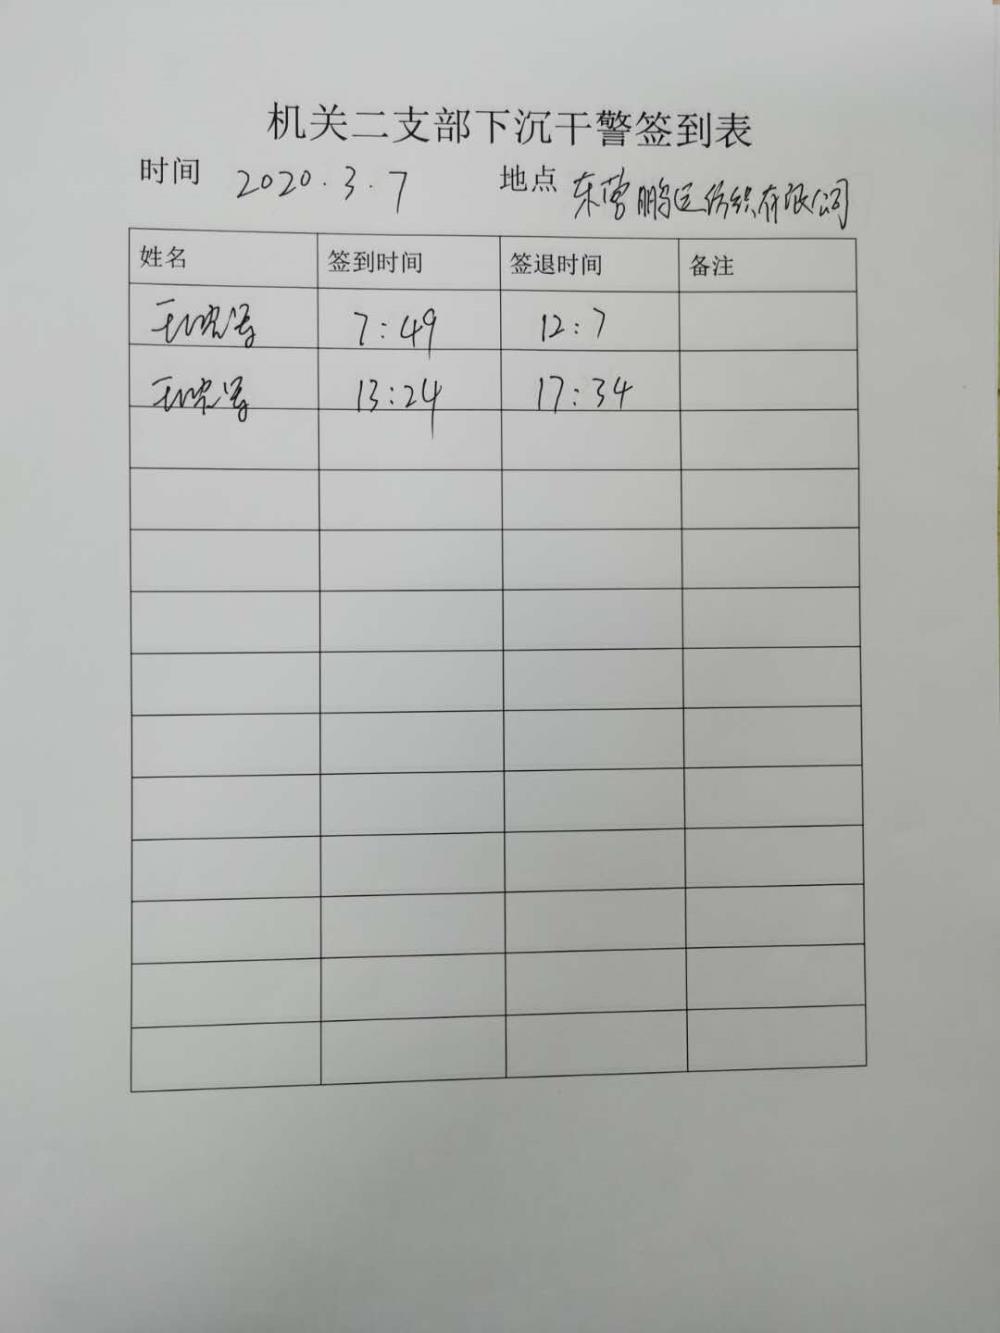 机关二支部下沉干警签到表
时间 2020.3.7 地点 东营鹏运纺织有限公司
姓名 签到时间 签退时间 备注
7:49 12:7
13:24 17:34